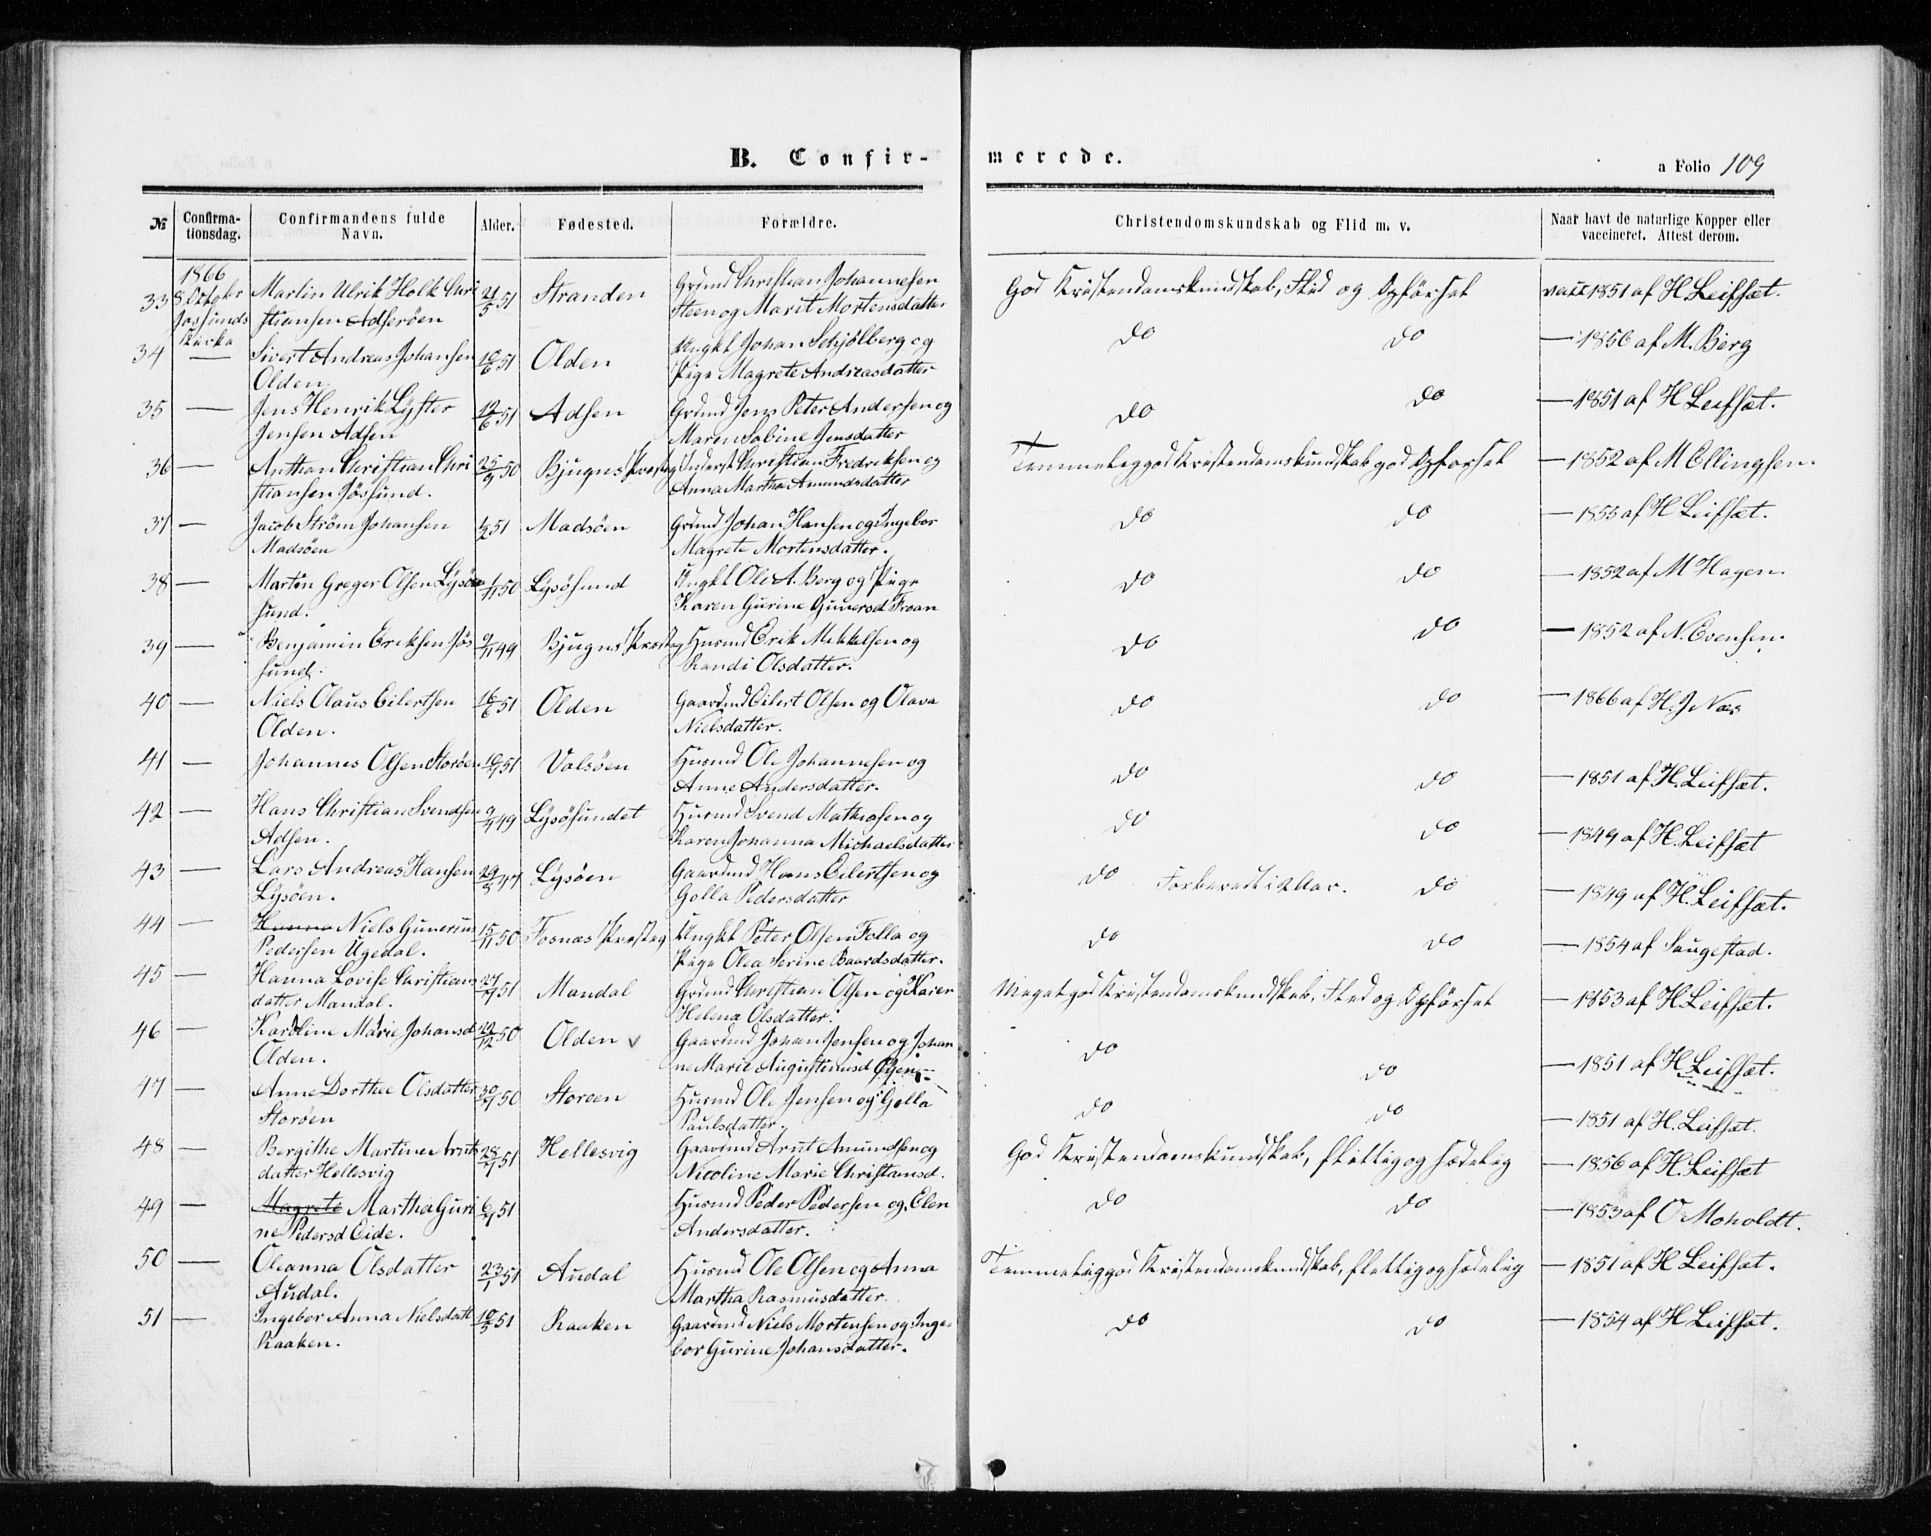 B. Confir-
merede.
a Folio 109
№
Confirma-
tionsdag.
Confirmandens fulde
Navn.
Alder.
Fødested.
Forældre.
Christendomskundskab og Flid m. v.
Naar havt de naturlige Kopper eller
vaccineret. Attest derom.
1866
33 8 October Martin Ulrik Holk Chri 21/5 51 Stranden Grdmd Christian Johannesen God Kristendomskundskab, Flid og Opførsel vacc 1851 af H. Leifsæt.
Jøssunds stiansen Adserøen Steen og Marit Mortensdatter
Kirke
34 — Sivert Andreas Johansen 51 Olden Ungkl Johan Schjölberg og do do — 1856 af M. Berg
Olden Pige Magrete Andreasdatter
35 — Jens Henrik Lyster 51 Adsen Grdmd Jens Peter Andersen og do do — 1851 af H Leifsæt.
Jensen Adsen Maren Sabine Jensdatter
36 — Anthon Christian Chri 25/9 50 Bjugns Præsteg Inderst Christian Fredriksen og Temmelig god Kristendomskundskab god Opførsel — 1852 af M Ellingsen.
stiansen Jøssund. Anna Martha Amundsdatter
37 — Jacob Strøm Johansen 51 Madsöen Grdmd Johan Hansen og Ingebor do do — 1853 af H Leifsæt.
Madsöen Magrete Mortensdatter.
38 — Martin Greger Olsen Lysö 1/11 50 Lysösund Ungkl Ole A. Berg og Pige do do — 1852 af M Hagen.
sund. Karen Gurine Gunersd Froan
39 — Benjamin Eriksen Jøs 9/11 49 Bjugns Præsteg Husmd Erik Mikkelsen og do do — 1852 af N. Evensen.
sund. Randi Olsdatter.
40 — Niels Olaus Eilertsen 16/6 51 Olden Gaardmd Eilert Olsen og Olava do do — 1866 af H. J Næs
Olden. Nielsdatter.
41 — Johannes Olsen Storöen 51 Valsöen Husmd Ole Johannesen og do do — 1851 af H. Leifsæt.
Anne Andersdatter.
42 — Hans Christian Svendsen 49 Lysösundet Husmd Svend Mathiasen og do do — 1849 af H. Leifsæt
Adsen. Karen Johanna Michaelsdatter
43 — Lars Andreas Hansen 29/5 47 Lysöen Gaardmd Hans Eilertsen og do Forberedt i 2 Aar. do — 1849 af H. Leifsæt.
Lysöen. Golla Pedersdatter
44 — Hanna Niels Gunerius 15/11 50 Fosnæs Præsteg Ungkl Peter Olsen Folla og do do — 1854 af Saugestad.
Pedersen Ugedal. Pige Olea Serine Baardsdatter.
45 — Hanna Lovise Christians 51 Mandal Grdmd Christian Olsen og Karen Meget god Kristendomskundskab, Flid og Opførsel — 1853 af H. Leifsæt.
datter Mandal. Helena Olsdatter.
46 — Karoline Marie Johansd 22/12 50 Olden v Gaardmd Johan Jensen og Johan do do — 1851 af H. Leifsæt.
Olden. ne Marie Augustinusd Øyen
47 — Anne Dorthee Olsdatter 50 Storöen Husmd Ole Jensen og Golla do do — 1851 af H. Leifsæt.
Storöen Paulsdatter.
48 — Bergithe Martine Arnts 51 Hellesvig Gaardmd Arnt Amundsen og God Kristendomskundskab, flittig og sædelig — 1856 af H. Leifsæt
datter Hellesvig Nicoline Marie Christiansd.
49 — Magrete Martha Guri 51 Husmd Peder Pedersen og Elen do do — 1853 af O Moholdt.
ne Pedersd Eide. Andersdatter.
50 — Oleanna Olsdatter 23/1 51 Audal Husmd Ole Olsen og Anna Temmelig god Kristendomskundskab, flittig og sædelig — 1851 af H Leifsæt.
Audal. Martha Rasmusdatter.
51 — Ingebor Anna Nielsdatt 51 Raaken Gaardmd Niels Mortensen og Inge- do do — 1854 af H Leifsæt.
Raaken. bor Gurine Johansdatter.